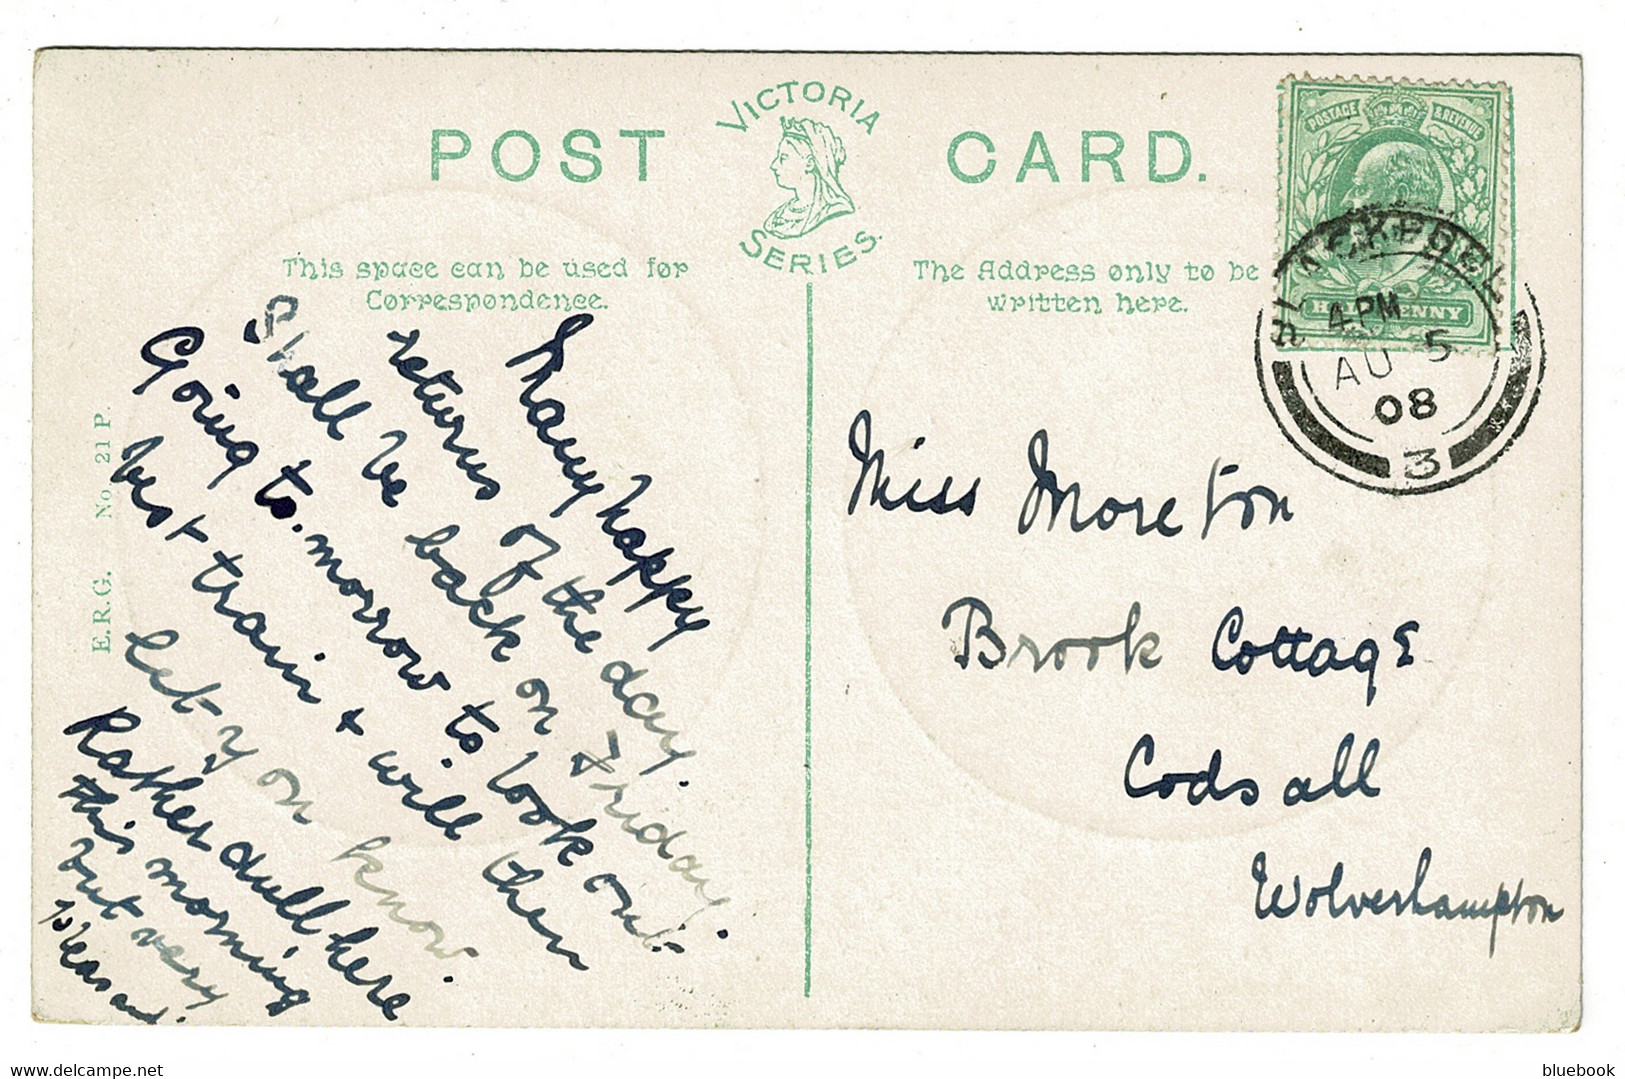 POST CARD.
VICTORIA
SERIES.
This space can be used for
Correspondence.
The Address only to be
written here.
POSTAGE & REVENUE
HALFPENNY
BLACKPOOL
4 PM
AU 5
08
3
E.R.G. No. 21 P.
Many happy
returns of the day.
Shall be back on Friday.
Going to-morrow to look out
best train & will then
let y on know.
Rather dull here
this morning
but very
pleasant.
Miss Moreton
Brook Cottage
Codsall
Wolverhampton
delcampe.net
bluebook